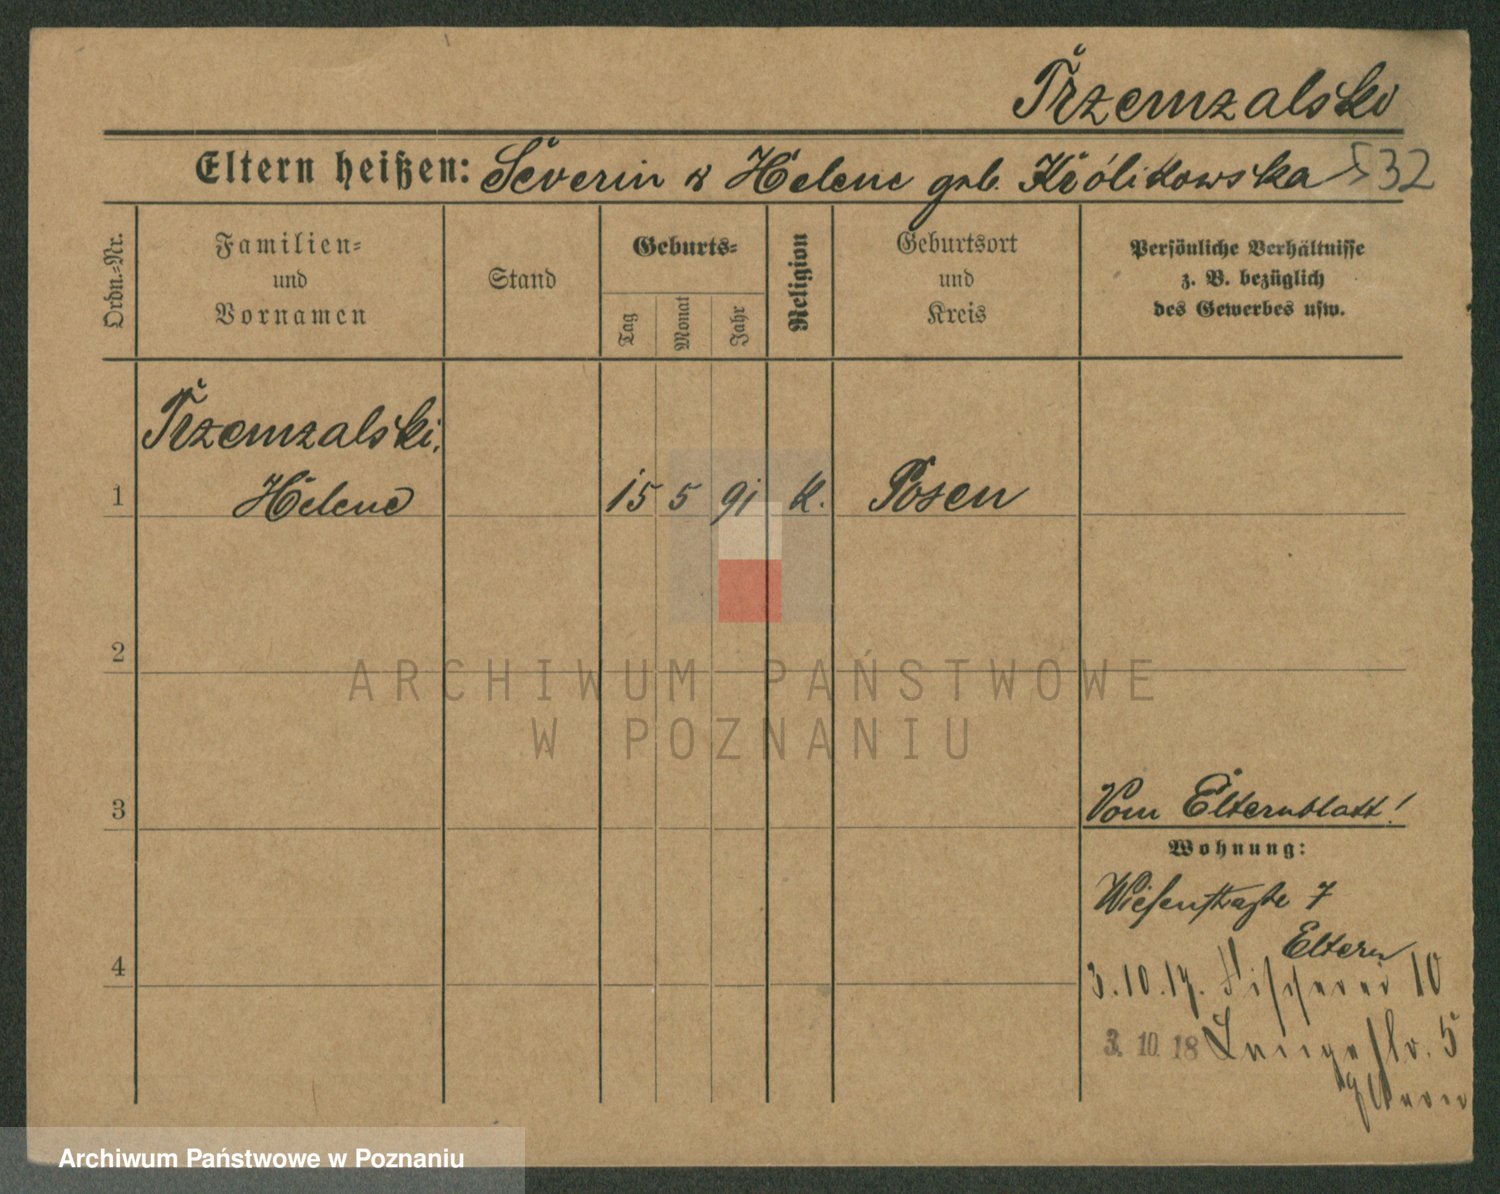 Trzemzalski
Eltern heißen: Severin & Helene geb. Królikowska 532
Ordn.-Nr.
Familien-
und
Vornamen
Stand
Geburts-
Tag
Monat
Jahr
Religion
Geburtsort
und
Kreis
Persönliche Verhältnisse
z. B. bezüglich
des Gewerbes usw.
Trzemzalski,
1 Helene 15 5 91 k. Posen
2
ARCHIWUM PAŃSTWOWE
W POZNANIU
3 Vom Elternblatt!
Wohnung:
Wiesenstraße 7
Eltern
4
3.10.17. Fischerei 10
3. 10. 18 Langestr. 5
Eltern
Archiwum Państwowe w Poznaniu